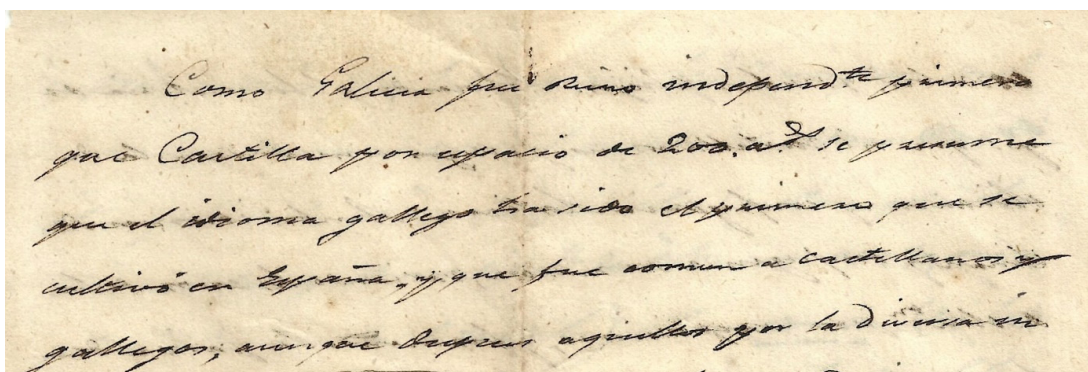 Como Galicia fue Reino independ.te primero
que Castilla por espacio de 200. a.s se presume
que el idioma gallego ha sido el primero que se
cultivó en España, y que fue comun a castellanos y
gallegos, aunque despues aquellos por la diversa in